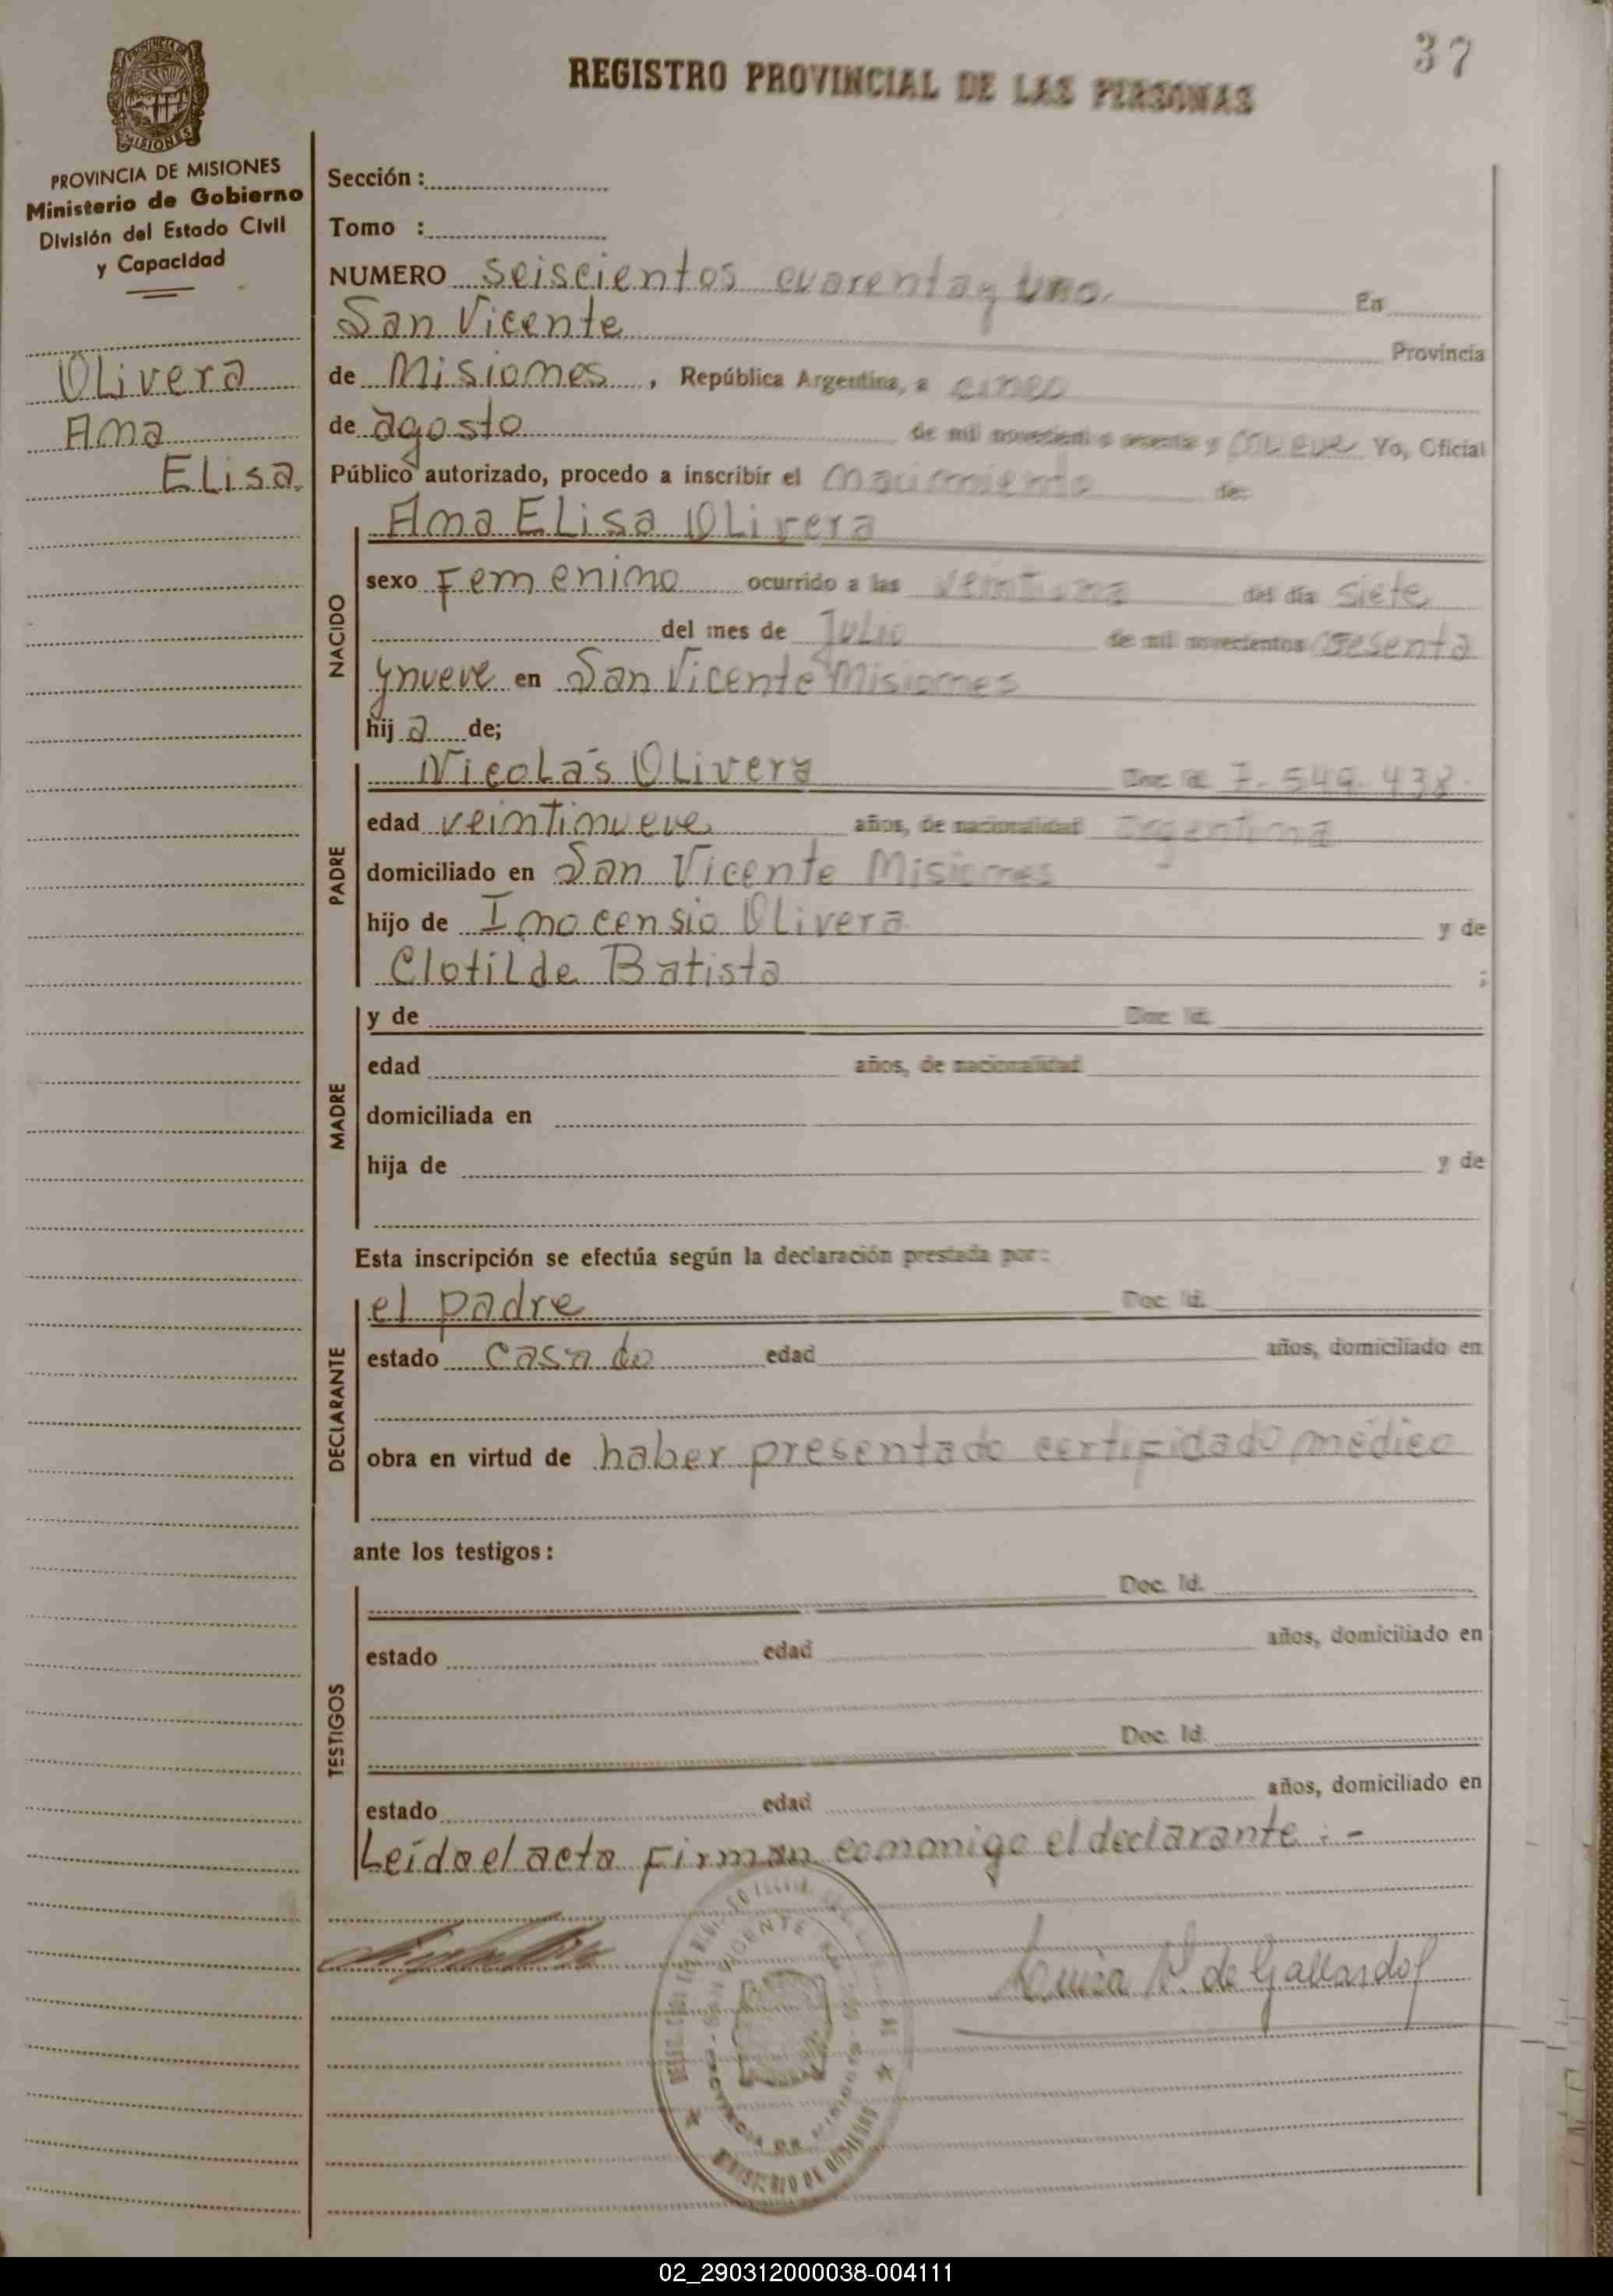 37
REGISTRO PROVINCIAL DE LAS PERSONAS
PROVINCIA DE MISIONES
PROVINCIA DE MISIONES
Ministerio de Gobierno
División del Estado Civil
y Capacidad
Olivera
Ana
Elisa
Sección :
Tomo :
NUMERO seiscientos cuarenta y uno. En
San Vicente
Provincia
de Misiones, República Argentina, a cinco
de agosto de mil novecientos sesenta y nueve Yo, Oficial
Público autorizado, procedo a inscribir el nacimiento de:
NACIDO
Ana Elisa Olivera
sexo Femenino ocurrido a las veintiuna del día siete
del mes de Julio de mil novecientos sesenta
y nueve en San Vicente Misiones
hija de;
PADRE
Nicolás Olivera Doc. Id. 7.549.438
edad veintinueve años, de nacionalidad argentina
domiciliado en San Vicente Misiones
hijo de Inocensio Olivera y de
Clotilde Batista ;
MADRE
y de Doc. Id.
edad años, de nacionalidad
domiciliada en
hija de y de
Esta inscripción se efectúa según la declaración prestada por:
DECLARANTE
el padre Doc. Id.
estado casado edad años, domiciliado en
obra en virtud de haber presentado certifidado médico
ante los testigos:
TESTIGOS
Doc. Id.
estado edad años, domiciliado en
Doc. Id.
estado edad años, domiciliado en
Leída el acta Firman conmigo el declarante.-
SAN VICENTE
PROVINCIA DE MISIONES
MINISTERIO DE GOBIERNO
de Gallardo
02_290312000038-004111